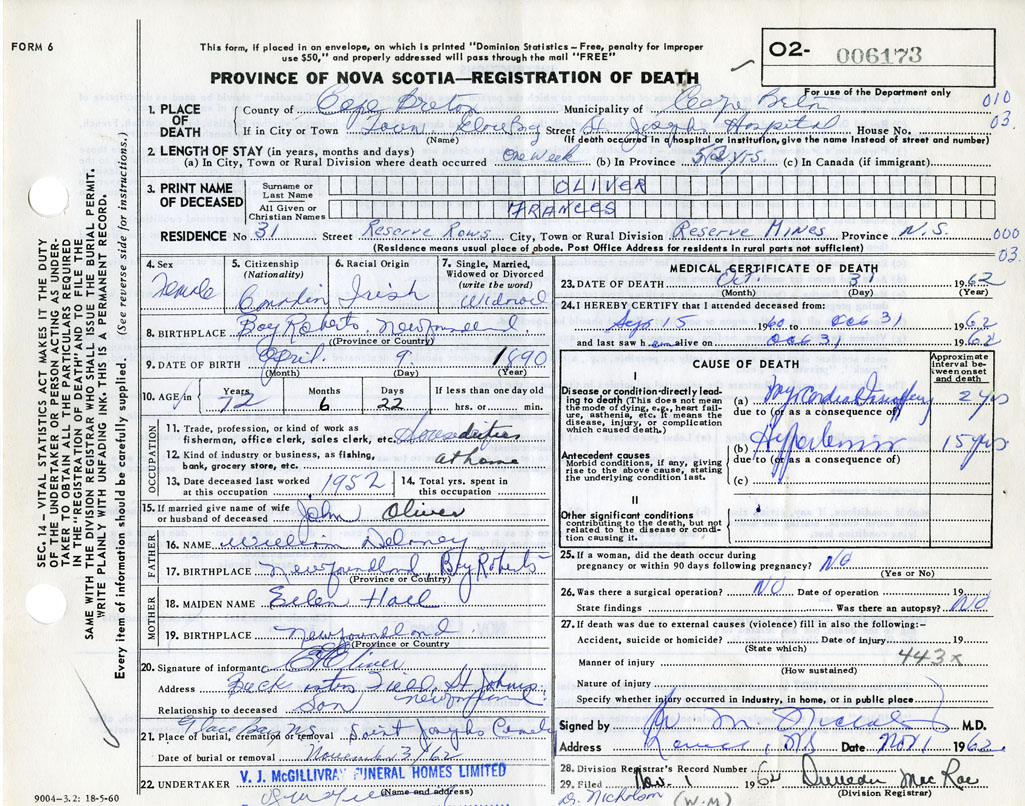 FORM 6
This form, if placed in an envelope, on which is printed "Dominion Statistics – Free, penalty for improper
use $50," and properly addressed will pass through the mail "FREE"
O2- 006173
For use of the Department only
PROVINCE OF NOVA SCOTIA—REGISTRATION OF DEATH
010
03.
1. PLACE OF DEATH
County of Cape Breton Municipality of Cape Breton
If in City or Town Town Glace Bay Street St. Josephs Hospital House No.
(Name) (If death occurred in a hospital or institution, give the name instead of street and number)
2. LENGTH OF STAY (in years, months and days)
(a) In City, Town or Rural Division where death occurred One Week (b) In Province 52 yrs. (c) In Canada (if immigrant)
3. PRINT NAME OF DECEASED
Surname or Last Name OLIVER
All Given or Christian Names FRANCES
RESIDENCE No 31 Street Reserve Rows City, Town or Rural Division Reserve Mines Province N.S.
(Residence means usual place of abode. Post Office Address for residents in rural parts not sufficient)
000
03.
4. Sex Female
5. Citizenship (Nationality) Canadian
6. Racial Origin Irish
7. Single, Married, Widowed or Divorced (write the word) Widowed
8. BIRTHPLACE Bay Roberts, Newfoundland
(Province or Country)
9. DATE OF BIRTH April 9 1890
(Month) (Day) (Year)
10. AGE Years 72 Months 6 Days 22 If less than one day old hrs. or min.
OCCUPATION
11. Trade, profession, or kind of work as fisherman, office clerk, sales clerk, etc. House duties
12. Kind of industry or business, as fishing, bank, grocery store, etc. at home
13. Date deceased last worked at this occupation 1952
14. Total yrs. spent in this occupation
15. If married give name of wife or husband of deceased John Oliver
FATHER
16. NAME William Delaney
17. BIRTHPLACE Newfoundland, Bay Roberts
(Province or Country)
MOTHER
18. MAIDEN NAME Eilen Hall
19. BIRTHPLACE Newfoundland
(Province or Country)
20. Signature of informant Oliver
Address Field, St Johns Newfoundland
Relationship to deceased Son
21. Place of burial, cremation or removal Glace Bay NS Saint Josephs
Date of burial or removal November 3/62
22. UNDERTAKER V. J. McGILLIVRAY FUNERAL HOMES LIMITED
(Name and address)
9004–3.2: 18-5-60
MEDICAL CERTIFICATE OF DEATH
23. DATE OF DEATH Oct. 31 1962
(Month) (Day) (Year)
24. I HEREBY CERTIFY that I attended deceased from:
Sept 15 1960 to Oct 31 1962
and last saw h em alive on Oct 31 1962
CAUSE OF DEATH
Approximate interval between onset and death
I
Disease or condition directly leading to death (This does not mean the mode of dying, e.g., heart failure, asthenia, etc. It means the disease, injury, or complication which caused death.)
(a) Myocardial 2 yrs
due to (or as a consequence of)
Antecedent causes
Morbid conditions, if any, giving rise to the above cause, stating the underlying condition last.
(b) Hypertension 15 yrs
due to (or as a consequence of)
(c)
II
Other significant conditions
contributing to the death, but not related to the disease or condition causing it.
25. If a woman, did the death occur during pregnancy or within 90 days following pregnancy? NO
(Yes or No)
26. Was there a surgical operation? NO Date of operation 19
State findings Was there an autopsy? NO
27. If death was due to external causes (violence) fill in also the following:-
Accident, suicide or homicide? Date of injury 19
(State which)
443x
Manner of injury
(How sustained)
Nature of injury
Specify whether injury occurred in industry, in home, or in public place
Signed by M. Nicholson M.D.
Address Date Nov 1 1962
28. Division Registrar's Record Number
29. Filed Nov. 1 1962 Duncan MacRae
(Division Registrar)
Dr. Nicholson (W.M)
SEC. 14 – VITAL STATISTICS ACT MAKES IT THE DUTY
OF THE UNDERTAKER OR PERSON ACTING AS UNDER-
TAKER TO OBTAIN ALL THE PARTICULARS REQUIRED
IN THE "REGISTRATION OF DEATH" AND TO FILE THE
SAME WITH THE DIVISION REGISTRAR WHO SHALL ISSUE THE BURIAL PERMIT.
WRITE PLAINLY WITH UNFADING INK. THIS IS A PERMANENT RECORD.
Every item of information should be carefully supplied. (See reverse side for instructions.)